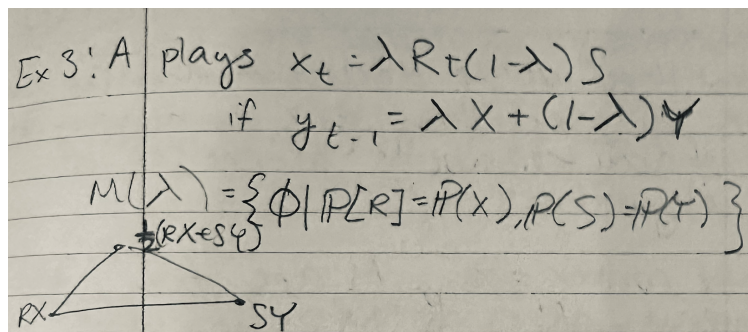 Ex 3: A plays x_t = λR + (1-λ)S
if y_{t-1} = λX + (1-λ)Y
M(λ) = {ϕ | ℙ[R] = ℙ(X), ℙ(S) = ℙ(Y)}
½(RX+SY)
RX SY